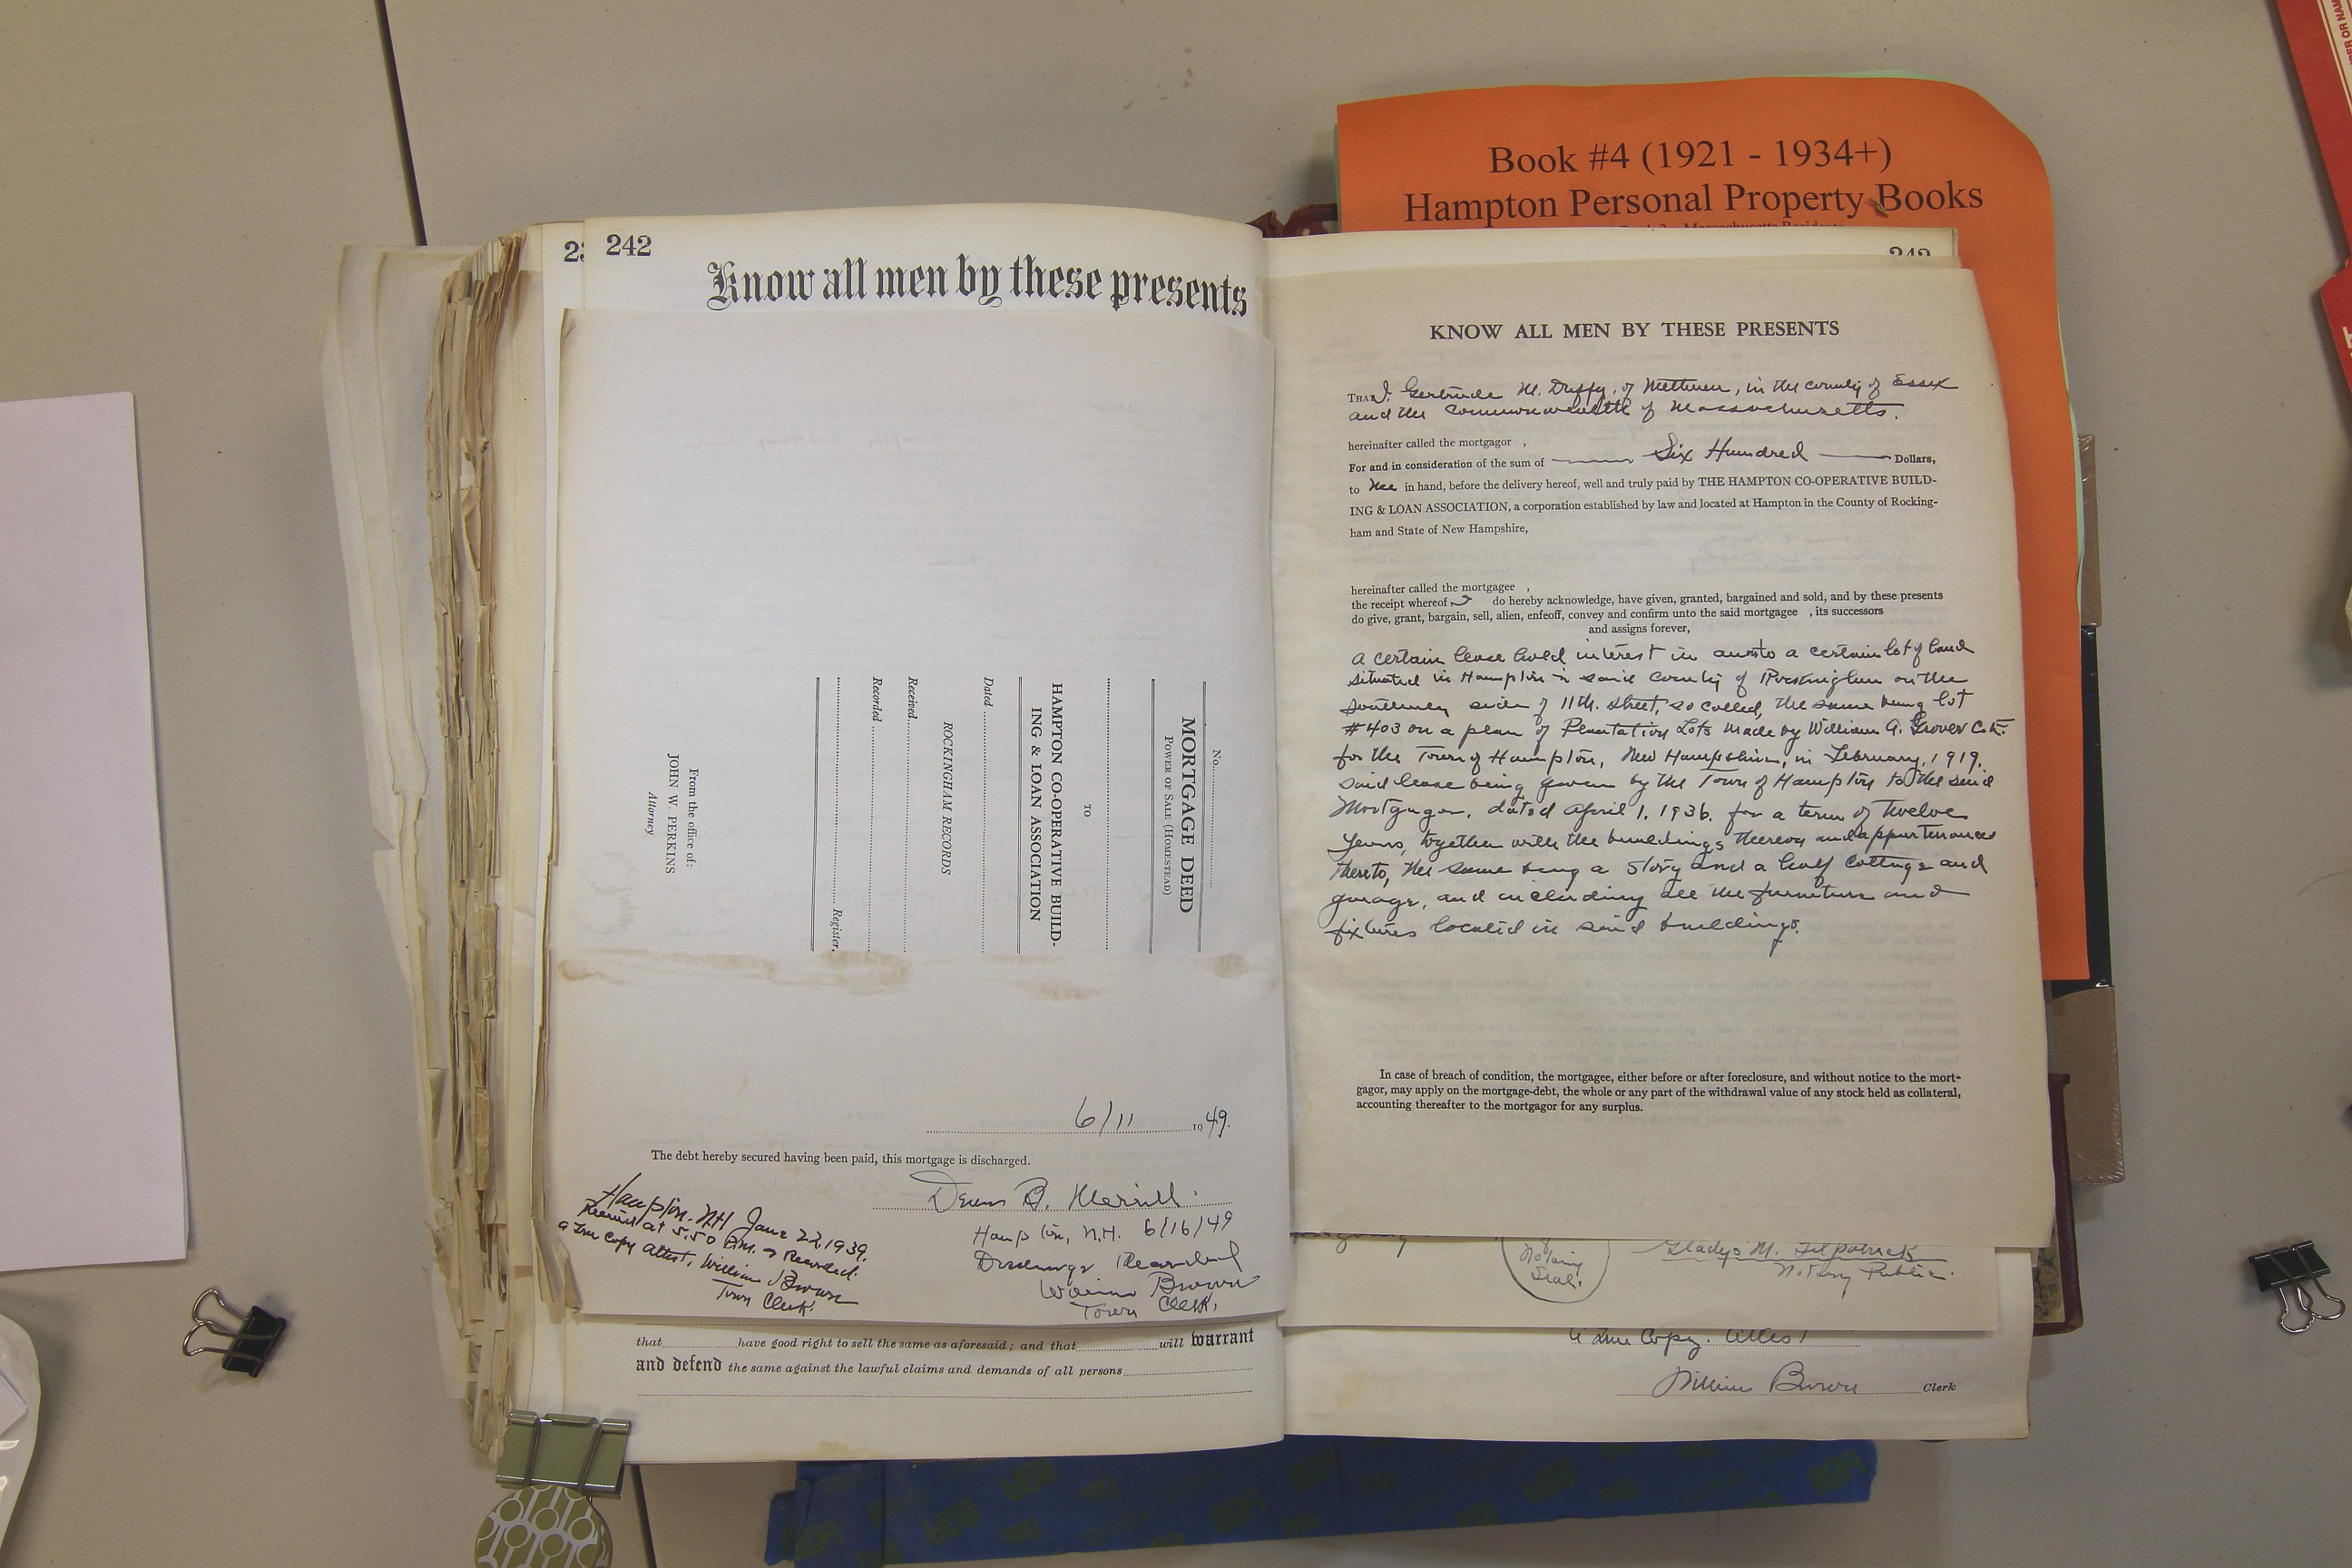 Book #4 (1921 - 1934+)
Hampton Personal Property Books
23
242
Know all men by these presents
No.
MORTGAGE DEED
POWER OF SALE (HOMESTEAD)
TO
HAMPTON CO-OPERATIVE BUILD-
ING & LOAN ASSOCIATION
Dated
ROCKINGHAM RECORDS
Received
Recorded
Register.
From the office of:
JOHN W. PERKINS
Attorney
6/11 1949.
The debt hereby secured having been paid, this mortgage is discharged.
B. Merrill.
Hampton, N.H. 6/16/49
Discharge Recorded
William Brown
Town Clerk.
Hampton. N.H June 22, 1939.
Received at 5.50 P.M. & Recorded.
a True Copy Attest, William Brown
Town Clerk.
that have good right to sell the same as aforesaid; and that will warrant
and defend the same against the lawful claims and demands of all persons
242
KNOW ALL MEN BY THESE PRESENTS
THAT I, Gertrude M. Duffy, of Methuen, in the county of Essex
and the Commonwealth of Massachusetts.
hereinafter called the mortgagor ,
For and in consideration of the sum of Six Hundred Dollars,
to me in hand, before the delivery hereof, well and truly paid by THE HAMPTON CO-OPERATIVE BUILD-
ING & LOAN ASSOCIATION, a corporation established by law and located at Hampton in the County of Rocking-
ham and State of New Hampshire,
hereinafter called the mortgagee ,
the receipt whereof I do hereby acknowledge, have given, granted, bargained and sold, and by these presents
do give, grant, bargain, sell, alien, enfeoff, convey and confirm unto the said mortgagee , its successors
and assigns forever,
a certain lease hold interest in and to a certain lot of land
situated in Hampton in said County of Rockingham on the
southerly side of 11th. street, so called, the same being lot
#403 on a plan of Plantation Lots made by William A. Grover C.E.
for the Town of Hampton, New Hampshire, in February, 1919,
said lease being given by the Town of Hampton to the said
Mortgagor, dated April 1, 1936, for a term of twelve
years, together with the buildings thereon and appurtenances
thereto, the same being a story and a half cottage and
garage, and including all the furniture and
fixtures located in said buildings.
In case of breach of condition, the mortgagee, either before or after foreclosure, and without notice to the mort-
gagor, may apply on the mortgage-debt, the whole or any part of the withdrawal value of any stock held as collateral,
accounting thereafter to the mortgagor for any surplus.
Notary
Seal.
Gladys M. Filpatrick
Notary Public.
a True Copy. Attest
William Brown Clerk